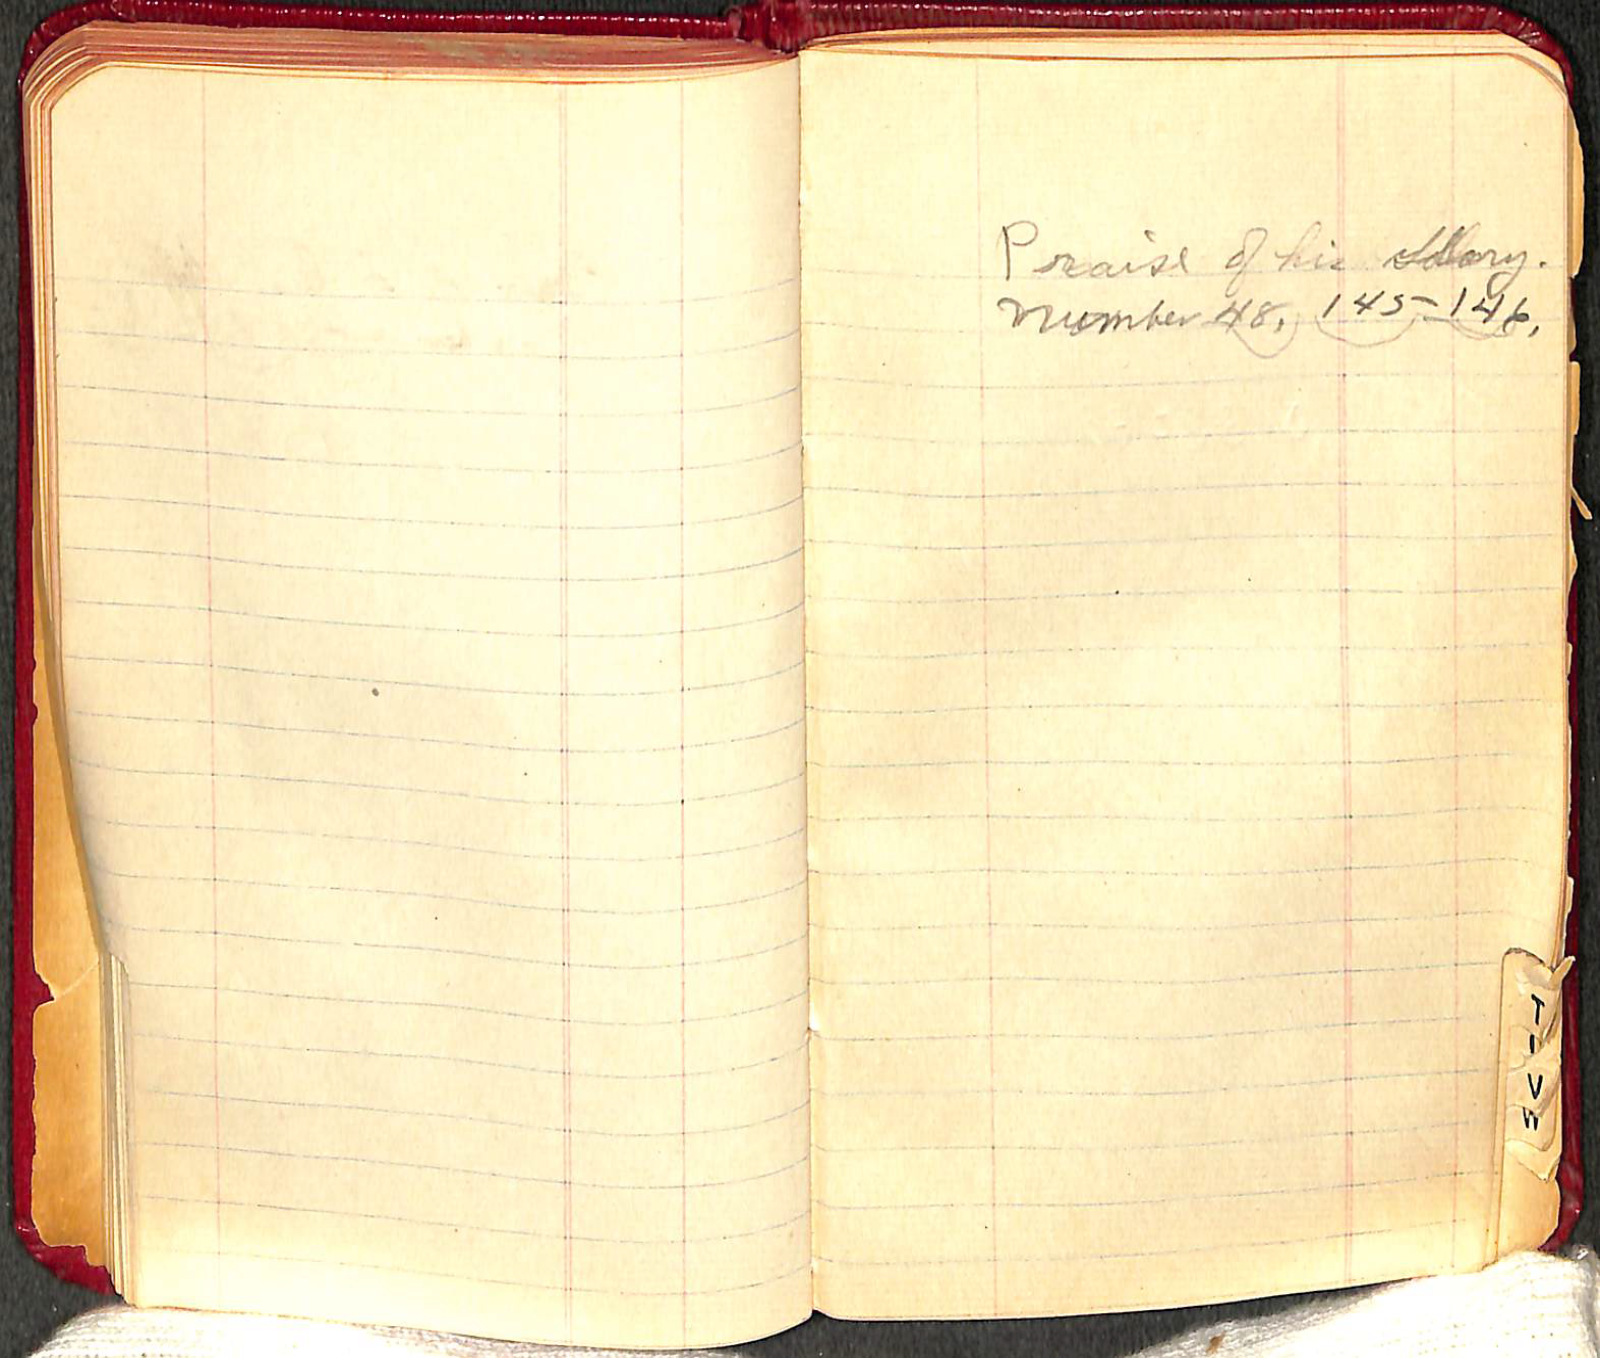 Praise of his Glory.
Number 48. 145-146.
T
U
W